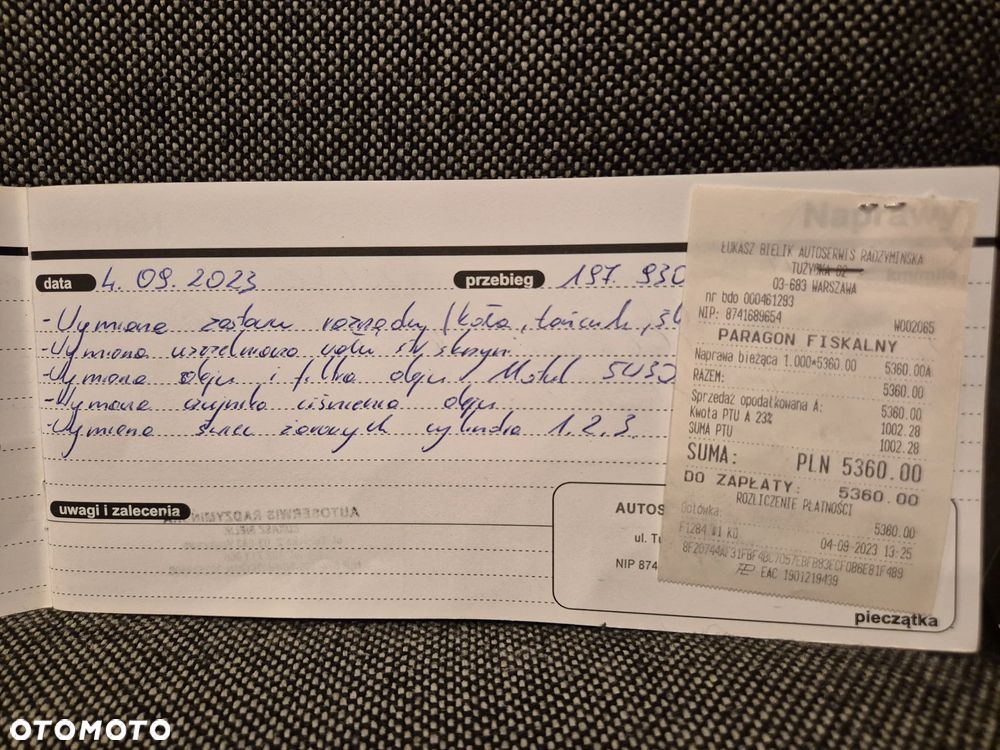 Naprawy
data 4.09.2023 przebieg 197.930
- Wymiana zestawu rozrządu (koła, łańcuch,
- Wymiana uszczelniacza wału sk skrzyni
- Wymiana oleju i filtra oleju / Motul 5W30
- Wymiana czujnika ciśnienia oleju
- Wymiana świec żarowych cylindra 1.2.3.
uwagi i zalecenia
AUTOSERWIS RADZYMIŃSKA
AUTOS
ul. Tu
NIP 874
pieczątka
ŁUKASZ BIELIK AUTOSERWIS RADZYMIŃSKA
TUŻYCKA 82
03-683 WARSZAWA
nr bdo 000461293
NIP: 8741689654 W002065
PARAGON FISKALNY
Naprawa bieżąca 1.000*5360.00 5360.00A
RAZEM: 5360.00
Sprzedaż opodatkowana A: 5360.00
Kwota PTU A 23% 1002.28
SUMA PTU 1002.28
SUMA: PLN 5360.00
DO ZAPŁATY: 5360.00
ROZLICZENIE PŁATNOŚCI
Gotówka: 5360.00
04-09-2023 13:25
EAC 1901219439
OTOMOTO